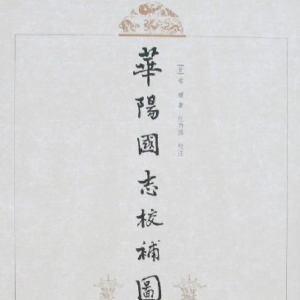 華陽國志校補圖
[晉]常璩 著 任乃强 校注